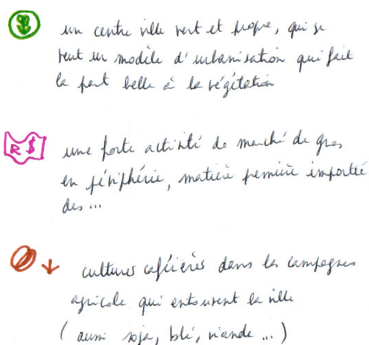 un centre ville vert et propre, qui se
veut un modèle d'urbanisation qui fait
la part belle à la végétation
R$
une forte activité de marché de gros
en périphérie, matière première importée
des ...
cultures caféières dans les campagnes
agricole qui entourent la ville
( aussi soja, blé, viande ... )